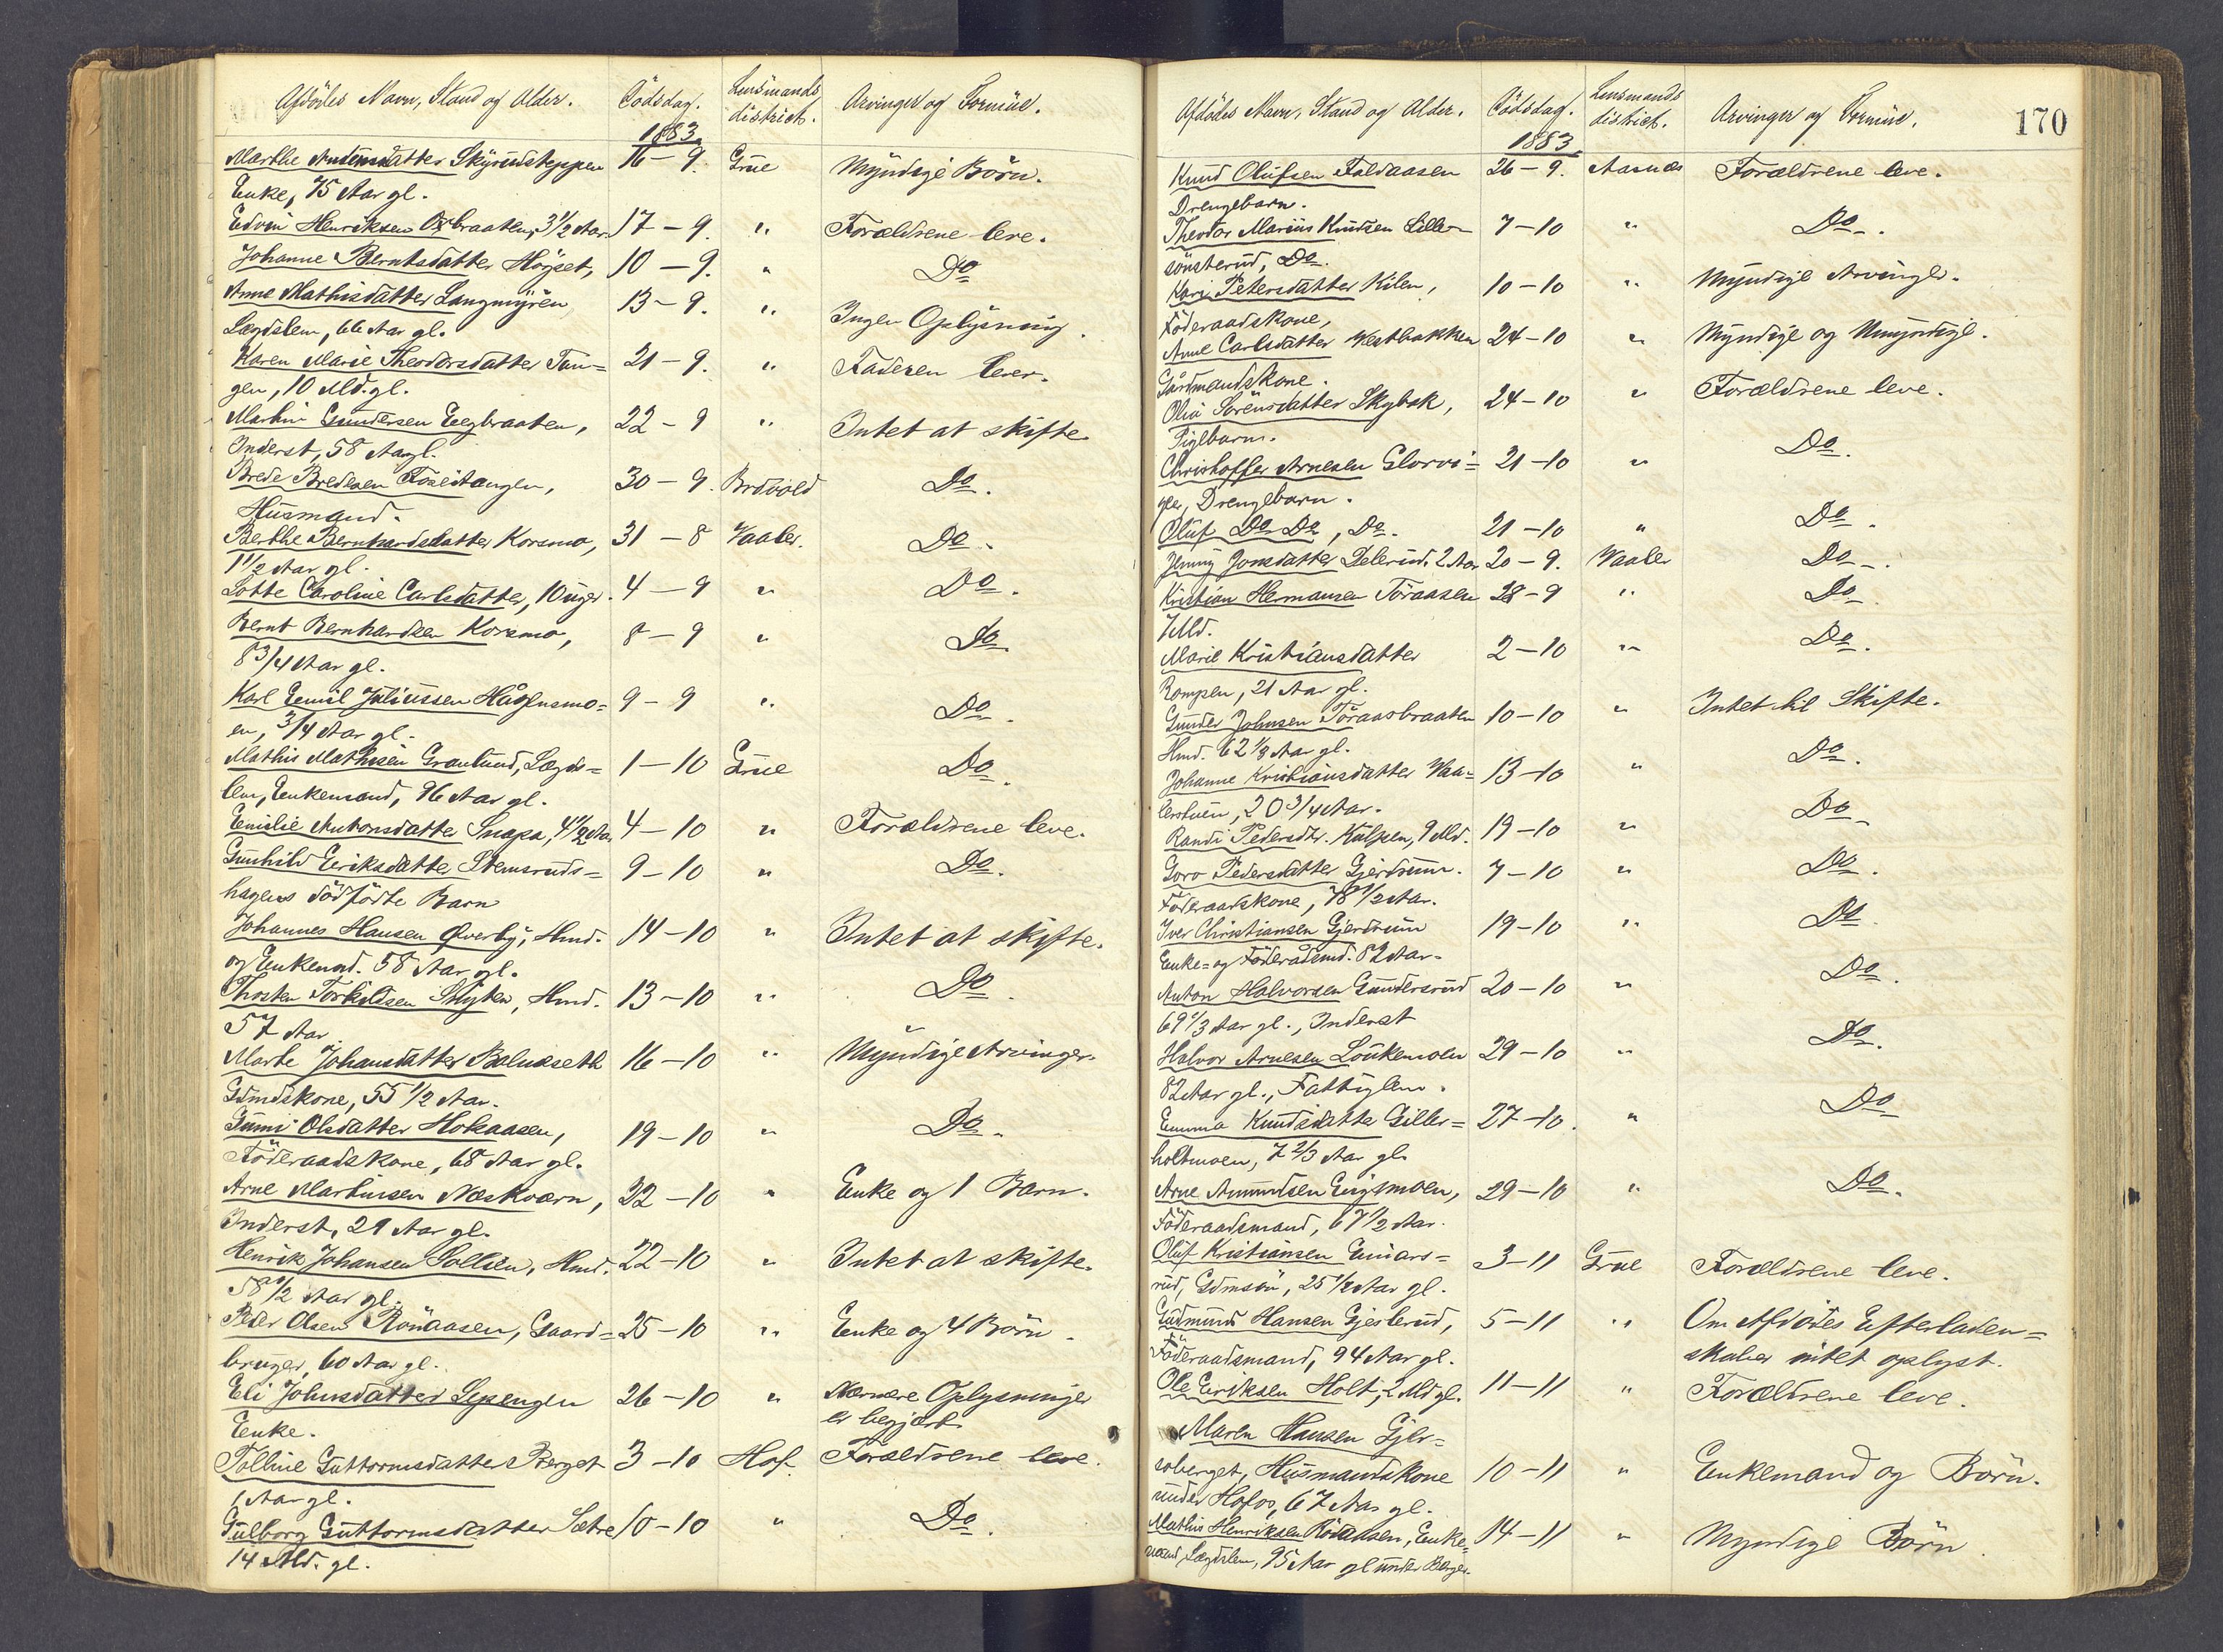 Afdödes Navn, Stand og Alder. Dödsdag. Lensmands district. Arvinger og Formue.
1883
Marthe Andersdatter Skyrudsteppen 16-9. Grue Myndige Börn.
Enke, 75 Aar gl.
Edvin Henriksen braaten, 3 1/2 Aar. 17-9. " Forældrene leve.
Johanne Berntsdatter Höjset, 10-9. " Do
Anne Mathisdatter Langmyren 13-9. " Ingen Oplysning.
Lægdslem, 66 Aar gl.
Karen Marie Theodorsdatter Tan= 21-9. " Faderen lever.
gen, 10 Md. gl.
Martin Gundersen Eegbraaten, 22-9 " Intet at skifte.
Inderst, 58 Aar gl.
Brede Bredesen Tosetangen, 30-9. Brovold Do.
Husmand.
Berthe Bernhardsdatter Korsmo, 31-8 Vaaler. Do.
1 1/2 Aar gl.
Lotte Caroline Carlsdatter, 10 uger. 4-9 " Do.
Bernt Bernhardsen Korsmo, 8-9 " Do.
8 3/4 Aar gl.
Karl Emil Juliussen Haagensmo= 9-9 " Do.
en, 3/4 Aar gl.
Mathis Mathisen Granlund, Lægds= 1-10 Grue Do.
lem, Enkemand, 76 Aar gl.
Emilie Antonsdatter Snapa, 4 1/2 Aar 4-10 " Forældrene leve.
Gunhild Eriksdatter Stemsruds= 9-10 " Do.
hagens dödfödte Barn
Johannes Hansen Øverby, Hmd. 14-10 " Intet at skifte.
og Enkemd. 58 Aar gl.
Thosten Torkildsen Stryken, Hmd. 13-10 " Do.
57 Aar
Marte Johansdatter Balnæseth 16-10 " Myndige Arvinger.
Gdmdskone, 55 1/2 Aar.
Gunni Olsdatter Hokaasen, 19-10 " Do.
Föderaadskone, 68 Aar gl.
Arne Martinsen Næskværn, 22-10 " Enke og 1 Barn.
Inderst, 29 Aar gl.
Henrik Johansen Sollien, Hmd. 22-10 " Intet at skifte.
58 1/2 Aar gl.
Peder Olsen Rönaasen, Gaard= 25-10 " Enke og 4 Börn.
bruger, 60 Aar gl.
Eli Johnsdatter Sepengen 26-10 " Nærmere Oplysninger
Enke. er begjært.
Tolline Guttormsdatter Berget 3-10 Hof. Forældrene leve.
1 Aar gl.
Gulborg Guttormsdatter Sætre 10-10 " Do.
14 Md. gl.
170
Afdödes Navn, Stand og Alder. Dödsdag. Lensmands district. Arvinger og Formue.
1883
Knud Olufsen Faldaasen 26-9. Aasnæs Forældrene leve.
Drengebarn.
Theodor Marius Knudsen Lille- 7-10 " Do.
sönsterud, Do.
Kari Petersdatter Kilen, 10-10 " Myndige Arvinger.
Föderaadskone,
Anne Carlsdatter Vestbakken 24-10 " Myndige og Umyndige.
Gårdmandskone.
Olia Sörensdatter Skybak, 24-10 " Forældrene leve.
Pigebarn.
Christoffer Arnesen Glorvi= 21-10 " Do.
gen, Drengebarn.
Oluf Do Do, Do. 21-10 " Do.
Jenny Jonsdatter Delerud, 2 Aar 20-9. Vaaler Do.
Kristian Hermansen Töraasen 28-9 " Do.
7 Md.
Marie Kristiansdatter 2-10 " Do.
Rompen, 21 Aar gl.
Gunder Johnsen Töraasbraaten 10-10 " Intet til Skifte.
Hmd. 62 1/3 Aar gl.
Johanne Kristiansdatter Vaa= 13-10 " Do.
lerstuen, 20 3/4 Aar.
Randi Pedersdtr. Kulpen, 9 Md. 19-10 " Do.
Goro Pedersdatter Gjerdrum. 7-10 " Do.
Föderaadskone, 78 1/2 Aar.
Iver Christiansen Gjerdrum 19-10 " Do
Enke= og Föderaadsmd. 82 Aar.
Anton Halvorsen Gundersrud 20-10 " Do.
69 1/3 Aar gl., Inderst
Halvor Arnesen Loukemoen 29-10 " Do.
82 Aar gl., Fattiglem.
Emma Knudsdatter Giller= 27-10. " Do
holtmoen, 7 2/3 Aar gl.
Arne Amundsen Engsmoen, 29-10 " Do.
Föderaadsmand, 67 1/2 Aar.
Oluf Kristiansen Einars= 3-11 Grue Forældrene leve.
rud, Gdmsön, 25 1/2 Aar gl.
Gudmund Hansen Gjesterud, 5-11 " Om Afdödes Efterladen=
Föderaadsmand, 94 Aar gl. skaber intet oplyst.
Ole Eriksen Holt, 2 Md gl. 11-11 " Forældrene leve.
Maren Hansen Gjer=
soberget, Husmandskone 10-11 " Enkemand og Börn.
under Hofos, 67 Aar gl.
Mathis Henriksen Rönaasen, Enke= 14-11 " Myndige Börn.
mand, Lægdslem, 95 Aar gl under Berger.